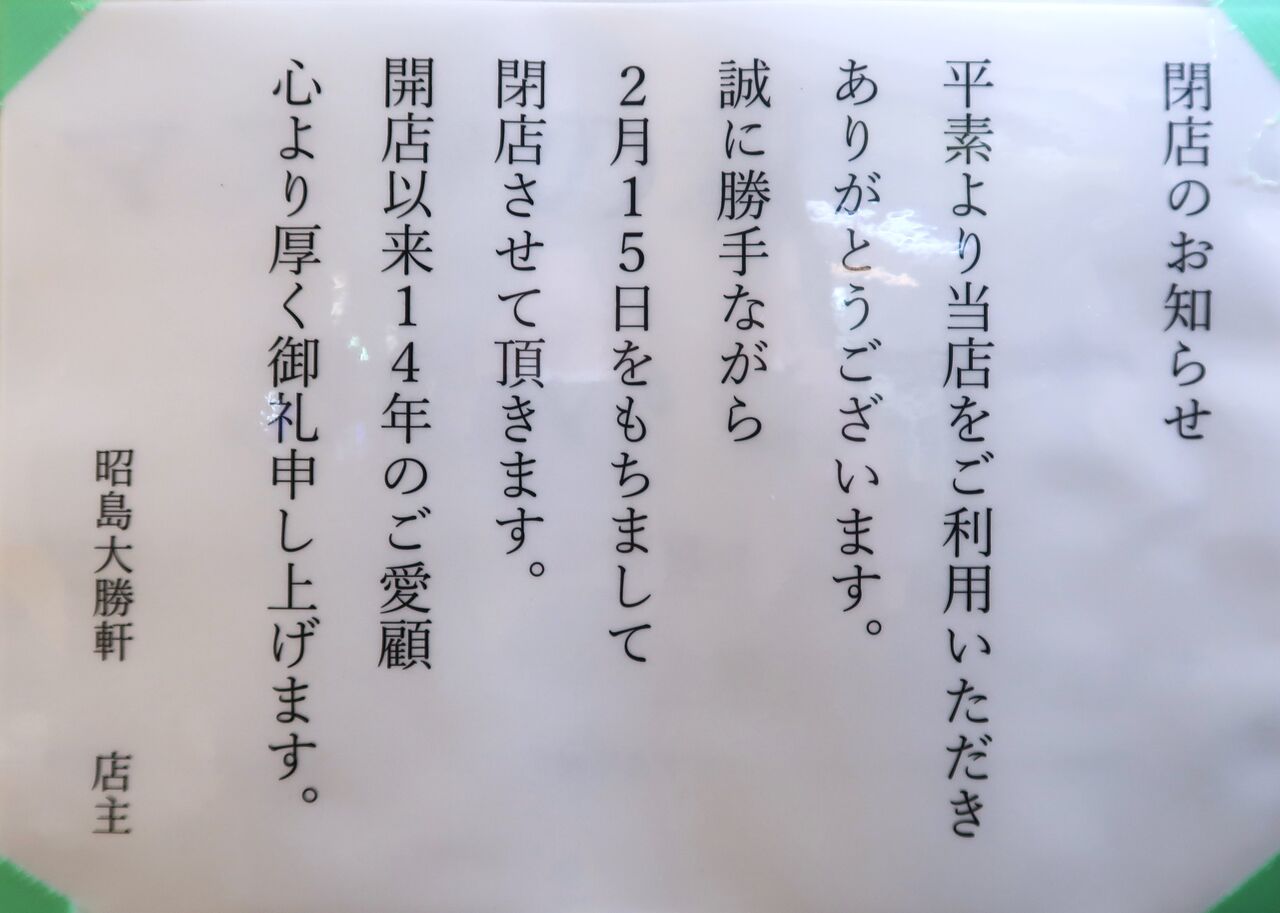 閉店のお知らせ
平素より当店をご利用いただき
ありがとうございます。
誠に勝手ながら
2月15日をもちまして
閉店させて頂きます。
開店以来14年のご愛顧
心より厚く御礼申し上げます。
昭島大勝軒　店主